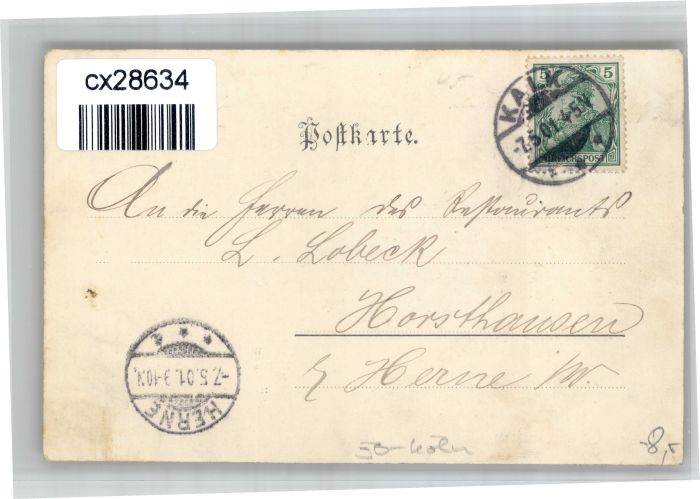 cx28634
5 5
REICHSPOST
KALK
-7.5.01.4-5N
Postkarte.
An die Herren des Restaurants
L. Lobeck
Horsthausen
b/ Herne i/W.
-7.5.01.9-10N.
HERNE
50-Köln
-8,-